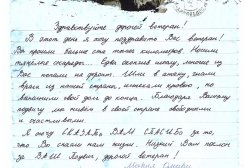 Здравствуйте дорогой ветеран!
В этот день я хочу поздравить Вас ветеран!
Вы прошли больше ста тысяч километров. Носили
тяжёлые снаряды. Едва окончив школу, многие из
Вас попали на фронт. Шли в атаку, гнали
врага из нашей страны, истекали кровью, но
выполнили свой долг до конца. Благодаря Вашему
подвигу мы живём в своей стране свободными
и счастливыми.
Я хочу СКАЗАТЬ ВАМ СПАСИБО за
то, что Вы спасли нам жизнь. Низкий Вам поклон
за ВАШ Подвиг, дорогой ветеран!
Мария